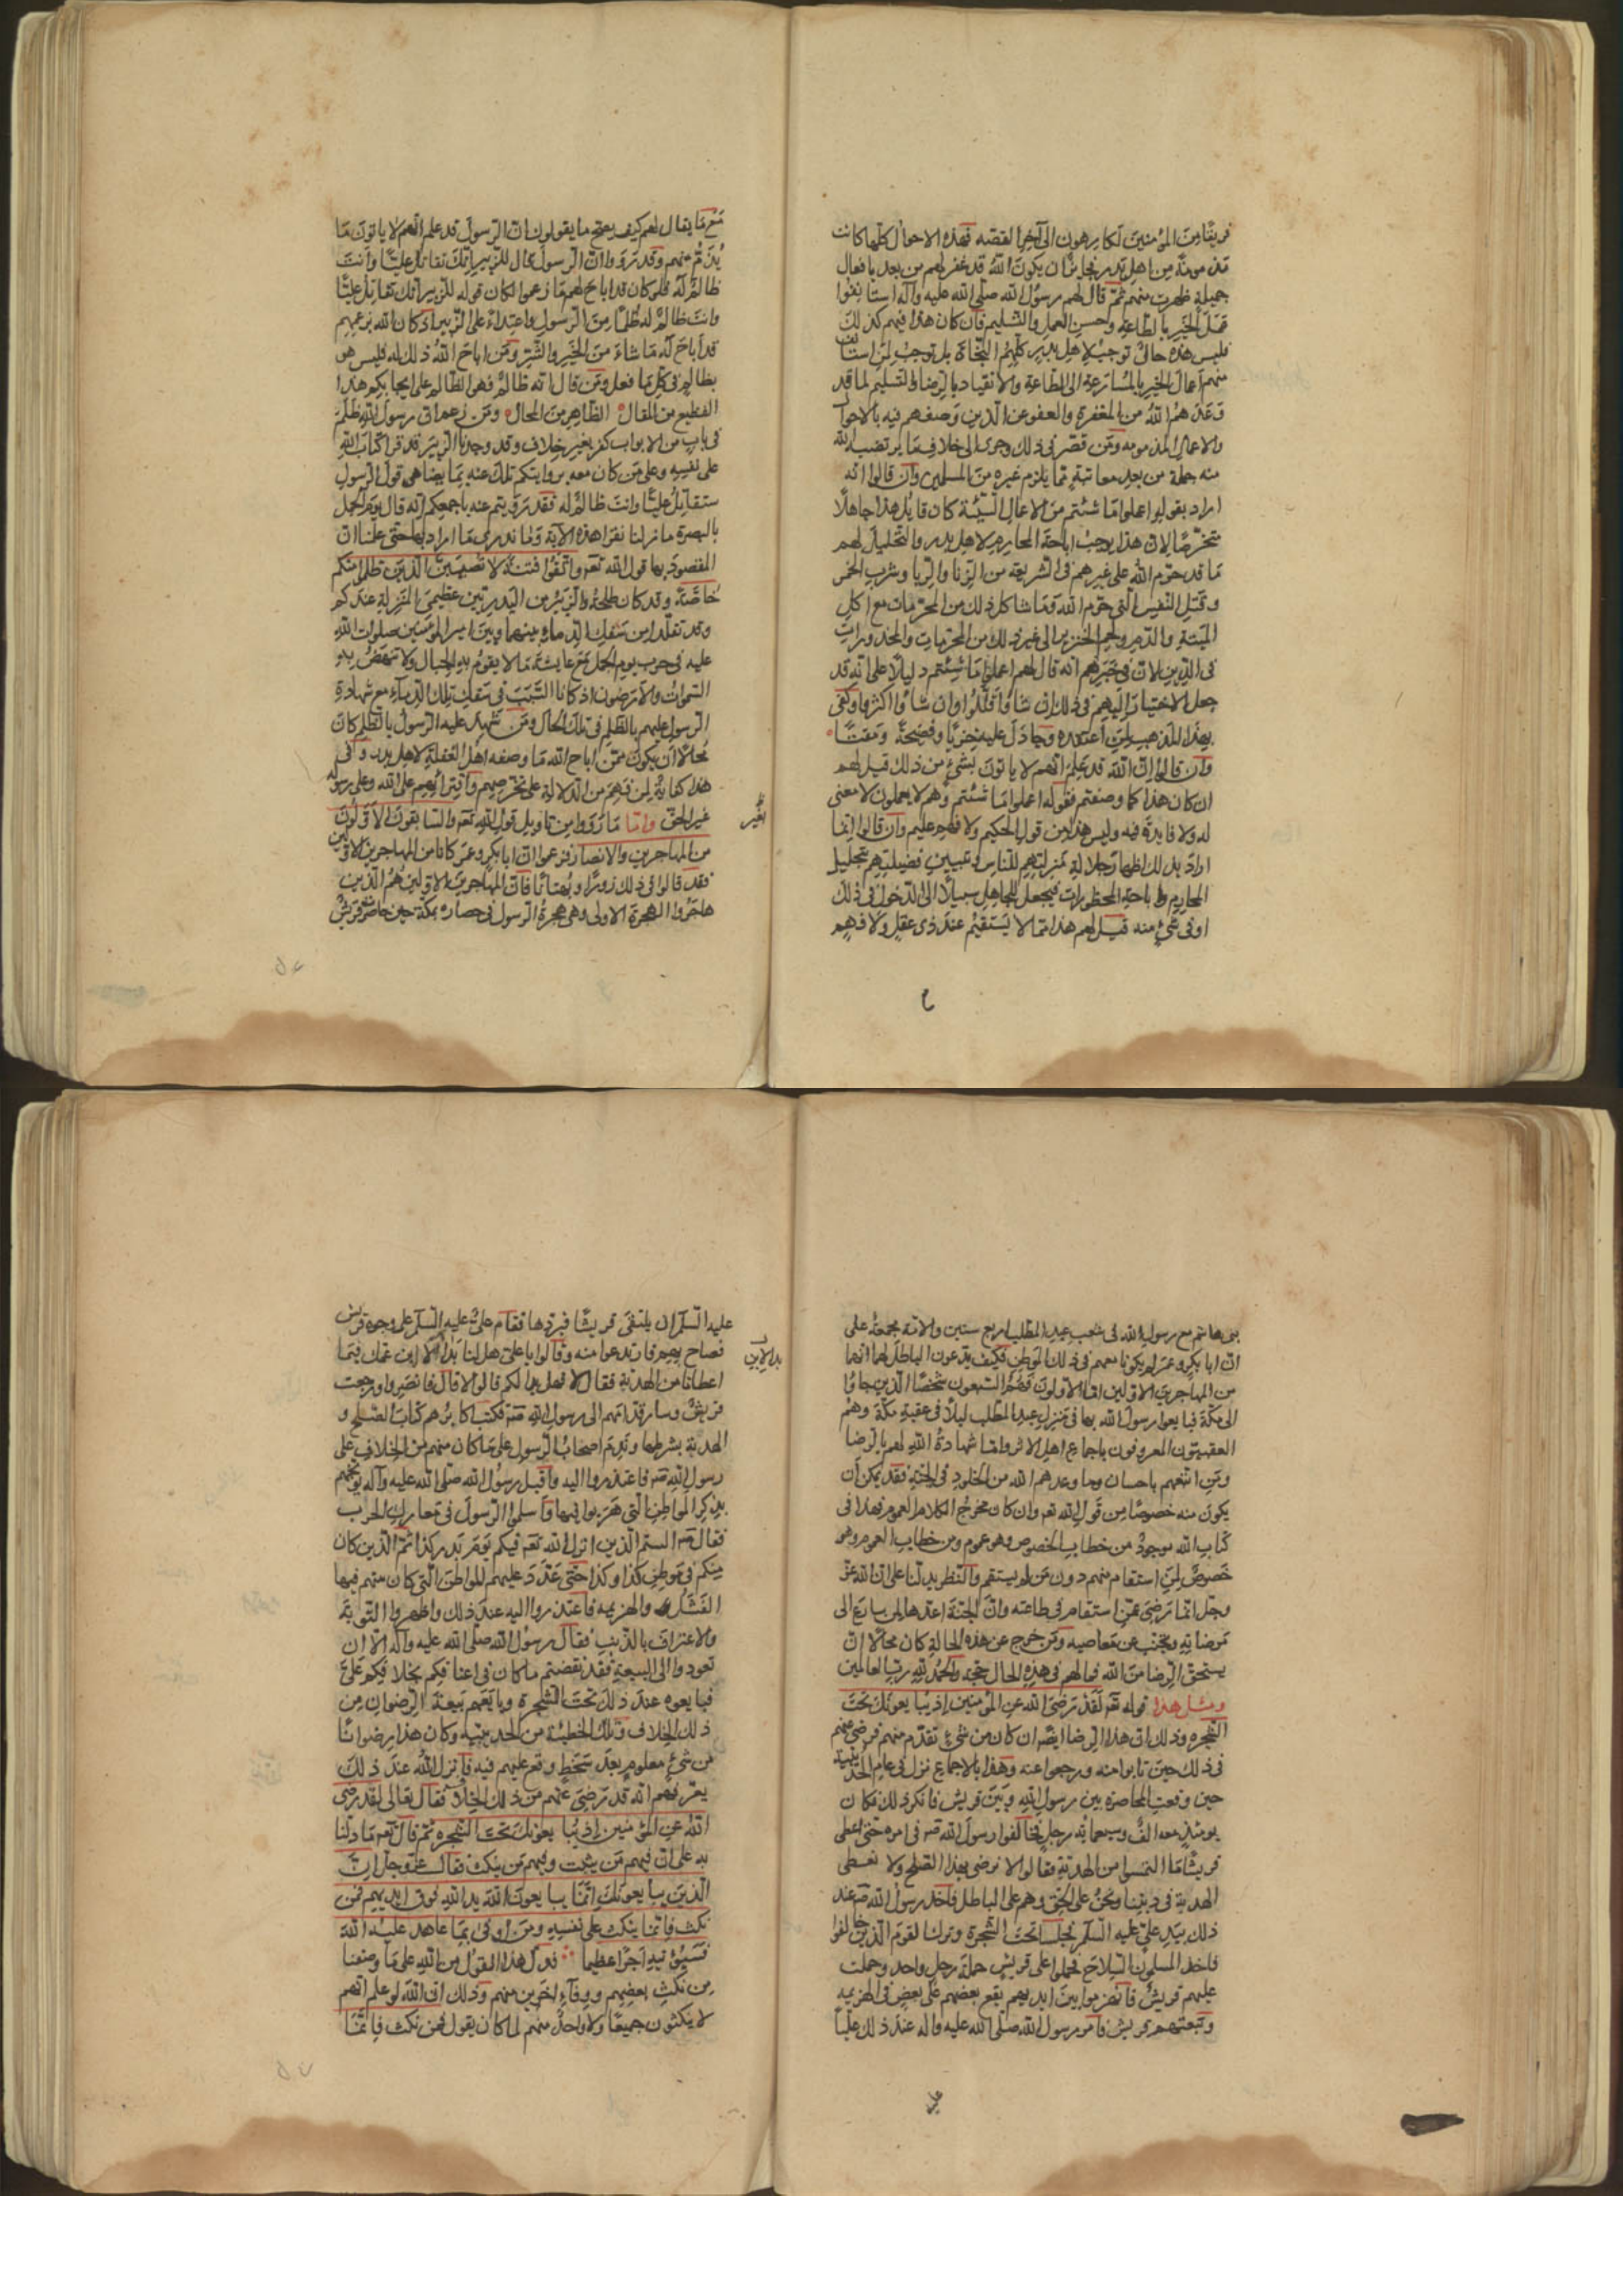 فريقا من المؤمنين لكارهون الى آخر القصه فهذه الاحوال كلها كانت
مذمومة من اهل بدر فجايز ان يكون الله قد غفر لهم من بعد بافعال
جميلة ظهرت منهم ثم قال لهم رسول الله صلى الله عليه وآله استانفوا
عمل الخير بالطاعة وحسن العمل والتسليم فان كان هذا فيهم كذلك
فليس هذه حال توجب لاهل بدر كلهم النجاة بل توجب لمن استانف
منهم اعمال الخير بالمسارعة الى الطاعة والانقياد بالرضا والتسليم لما قد
وعدهم الله من المغفرة والعفو عن الذين وصفهم فيه بالاحوال
والاعمال المذمومه ومن قصر في ذلك وجرى الى خلاف ما يرتضيه الله
منه جملة من بعد معاتبة مما يلزم غيره من المسلمين وان قالوا انه
اراد بقوله اعملوا ما شئتم من الاعمال السيئة كان قايل هذا جاهلا
متخرصا لان هذا يوجب اباحة المحارم لاهل بدر والتحليل لهم
ما قد حرم الله على غيرهم في الشريعة من الزنا والربا وشرب الخمر
وقتل النفس التي حرم الله وما شاكل ذلك من المحرمات مع اكل
الميتة والدم ولحم الخنزير الى غير ذلك من المحرمات والمحذورات
في الدين لان في خبرهم انه قال لهم اعملوا ما شئتم دليلا على انه قد
جعل الاختيار اليهم في ذلك ان شاؤا قللوا وان شاؤا اكثروا وكفى
بهذا المذهب لمن اعتقده وجادل عليه خزيا وفضيحة ومقتا
وان قالوا ان الله قد علم انهم لا ياتون بشئ من ذلك قيل لهم
ان كان هذا كما وصفتم فقوله اعملوا ما شئتم وهم لا يعملون لا معنى
له ولا فايدة فيه وليس هذا من قول الحكيم ولا فهم عليم وان قالوا انما
اراد بذلك اظهار جلالة منزلتهم للناس وتبيين فضيلتهم بتحليل
المحارم واباحة المحظورات فيجعل للجاهل سبيلا الى الدخول في ذلك
او في شئ منه قيل لهم هذا مما لا يستقيم عند ذي عقل ولا فهم
مع ما يقال لهم كيف يصح ما يقولون ان الرسول قد علم انهم لا ياتون ما
يذم منهم وقد رووا ان الرسول قال للزبير انك تقاتل عليا وانت
ظالم له فلو كان قد اباح لهم ما زعموا لكان قوله للزبير انك تقاتل عليا
وانت ظالم له ظلما من الرسول واعتداء على الزبير اذ كان الله بزعمهم
قد اباح له ما شاء من الخير والشر ومن اباح الله ذلك له فليس هو
بظالم في كل ما فعل ومن قال انه ظالم فهو الظالم على ايجابكم هذا
الفظيع من المقال الظاهر من المحال ومن زعم ان رسول الله ظلم
في باب من الابواب كفر بغير خلاف وقد وجدنا الزبير قد قرا كتاب الله
على نفسه وعلى من كان معه بروايتكم تلك عنه بما يضاهي قول الرسول
ستقاتل عليا وانت ظالم له فقد رويتم عنه باجمعكم انه قال يوم الجمل
بالبصرة ما زلنا نقرا هذه الآية وما ندري ما اراد بها حتى علمنا ان
المقصود بها قول الله تعه واتقوا فتنة لا تصيبن الذين ظلموا منكم
خاصة وقد كان طلحة والزبير من البدريين عظيمي المنزلة عندكم
وقد تقلدا من سفك الدماء بينهما وبين امير المؤمنين صلوات الله
عليه في حرب يوم الجمل مع عايشة ما لا يقوم به الجبال ولا تنهض به
السموات والارضون اذ كانا السبب في سفك تلك الدماء مع شهادة
الرسول عليهم بالظلم في تلك الحال ومن شهد عليه الرسول بالظلم كان
محالا ان يكون ممن اباح الله ما وصفه اهل الغفلة لاهل بدر وفي
هذا كفاية لمن فهم من الدلالة على تخرصهم وافترائهم على الله وعلى رسوله
غير الحق واما ما رووا من تاويل قول الله تعه والسابقون الاولون
من المهاجرين والانصار فزعموا ان ابا بكر وعمر كانا من المهاجرين الاولين
فقد قالوا في ذلك زورا وبهتانا فان المهاجرين الاولين هم الذين
هاجروا الهجرة الاولى وهي هجرة الرسول في حصاره بمكة حين حاصر قريش
بغير
بني هاشم مع رسول الله في شعب عبد المطلب اربع سنين والامة مجمعة على
ان ابا بكر وعمر لم يكونا معهم في ذلك الموطن فكيف يدعون الباطل لهما انهما
من المهاجرين الاولين اما الاولون فهم السبعون شخصا الذين جاؤا
الى مكة فبايعوا رسول الله بها في منزل عبد المطلب ليلا في عقبة مكة وهم
العقبيون المعروفون باجماع اهل الاثر واما شهادة الله لهم بالرضا
ومن اتبعهم باحسان وما وعدهم الله من الخلود في الجنة فقد يمكن ان
يكون منه خصوصا من قول الله تعه وان كان مخرج الكلام العموم فهذا في
كتاب الله موجود من خطاب الخصوص وهو عموم ومن خطاب العموم وهو
خصوص لمن استقام منهم دون من لم يستقم والنظر يدلنا على ان الله عز
وجل انما رضي عمن استقام في طاعته وان الجنة اعدها لمن سارع الى
مرضاته وتجنب عن معاصيه ومن خرج عن هذه الحالة كان محالا ان
يستحق الرضا من الله فما لهم في هذه الحال حجة والحمد لله رب العالمين
ومثل هذا قوله تعه لقد رضي الله عن المؤمنين اذ يبايعونك تحت
الشجره وذلك ان هذا الرضا ايضه ان كان من شئ تقدم منهم فرضي عنهم
في ذلك حين تابوا منه ورجعوا عنه وهذا بالاجماع نزل في عام الحديبية
حين وقعت المحاصره بين رسول الله وبين قريش فانكر ذلك فكان
يومئذ معه الف وسبعمائة رجل فخالفوا رسول الله صه في امره حتى اعطى
قريشا ما التمسوا من الهدنة فقالوا لا نرضى بهذا الصلح ولا نعطى
الهدية في ديننا ونحن على الحق وهم على الباطل فاخذ رسول الله صه عند
ذلك بيد علي عليه السلم فجلسا تحت الشجرة وترك القوم الذين خالفوا
فاخذ المسلمون السلاح فحملوا على قريش حملة رجل واحد وحملت
عليهم قريش فانهزموا بين ايديهم يقع بعضهم على بعض في الهزيمه
وتبعتهم قريش فامر رسول الله صلى الله عليه واله عند ذلك عليا
عليه السلم ان يلتقى قريشا فيردها فقام علي عليه السلم على وجوه قريش
فصاح بهم فارتدعوا منه وقالوا يا علي هل لنا بدا الابن عمك فيما
اعطانا من الهدنة فقال لا فهل بدا لكم قالوا لا قال فانصرفوا ورجعت
قريش وسار قدامهم الى رسول الله صه فكتب اكابرهم كتاب الصلح و
الهدنة بشرطها وندم اصحاب الرسول على ما كان منهم من الخلاف على
رسول الله صه فاعتذروا اليه واقبل رسول الله صلى الله عليه وآله يوبخهم
بذكر المواطن التي هربوا فيها واسلموا الرسول في معارك الحرب
فقال صه الستم الذين انزل الله تعه فيكم يوم بدر كذا ثم الذين كان
منكم في موطن كذا وكذا حتى عدد عليهم المواطن التي كان منهم فيها
الفشل والهزيمه فاعتذروا اليه عند ذلك واظهروا التوبة
والاعتراف بالذنب فقال رسول الله صلى الله عليه وآله الا ان
تعودوا الى البيعة فقد نقضتم ما كان في اعناقكم بخلافكم علي
فبايعوه عند ذلك تحت الشجرة وبايعهم بيعة الرضوان من
ذلك الخلاف وتلك الخطيئة من الحديبية وكان هذا رضوانا
من شئ معلوم بعد سخط وقع عليهم فيه فانزل الله عند ذلك
يعرفهم انه قد رضي عنهم من ذلك الخلاف فقال تعالى لقد رضي
الله عن المؤمنين اذ يبايعونك تحت الشجره ثم قال تعه ما دلنا
به على ان فيهم من يثبت وفيهم من ينكث فقال عز وجل ان
الذين يبايعونك انما يبايعون الله يد الله فوق ايديهم فمن
نكث فانما ينكث على نفسه ومن اوفى بما عاهد عليه الله
فسيؤتيه اجرا عظيما فدل هذا القول من الله على ما وصفنا
من نكث بعضهم ووفاء اخرين منهم وذلك ان الله لو علم انهم
لا ينكثون جميعا ولا واحد منهم لما كان يقول فمن نكث فانما